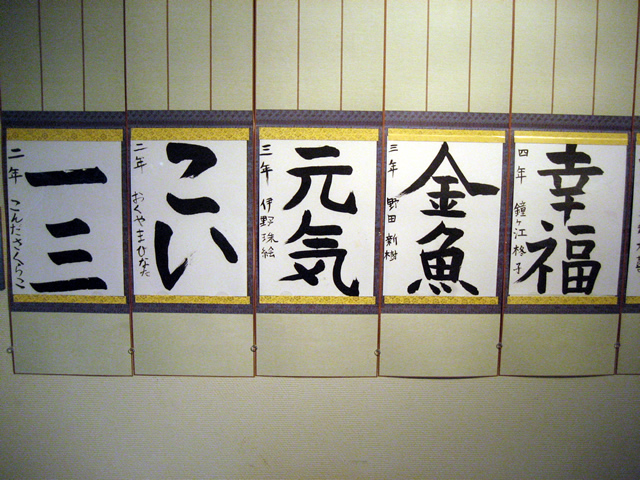 一三
二年 こんださくらこ
こい
二年 おくやまひなた
元気
三年 伊野珠絵
金魚
三年 野田新樹
幸福
四年 鐘ヶ江 子